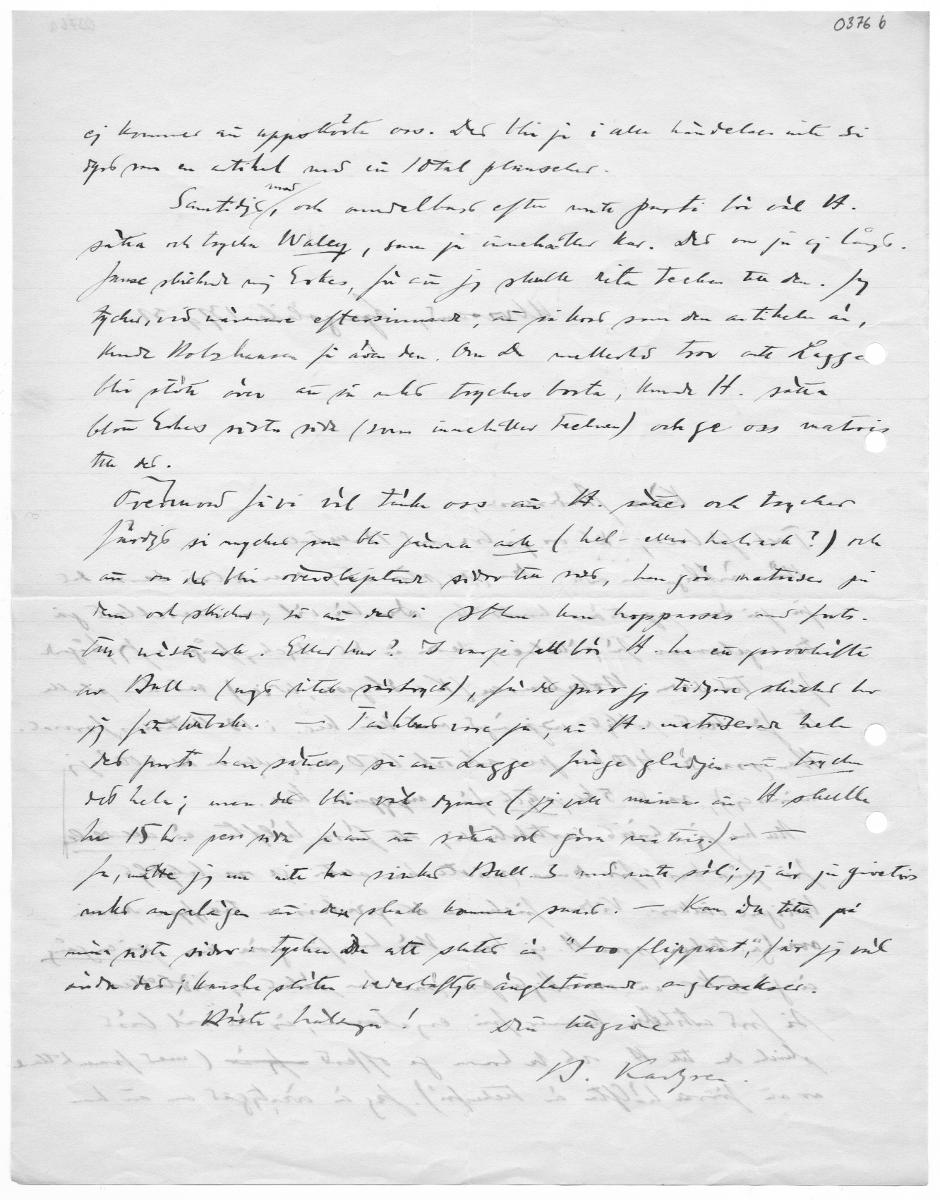 0376 b
ej kommer att uppskörta oss. Det blir ju i alla händelser inte så
dyrt som en artikel med en 10tal planscher.
Samtidigt med, och omedelbart efter mitt parti bör väl H.
sätta och trycka Waley, som ju innehåller kar. Det är ju ej långt.
Janse skickade mig Erkes, för att jag skulle rita tecken till den. Jag
tycker, vid närmare eftersinnande, att så kort som den artikeln är,
kunde Holzhausen få även den. Om Du emellertid tror att Lagge
blir stött över att så mycket tryckes borta, kunde H. sätta
blott Erkes sista sida (som innehåller tecknen) och ge oss matris
till det.
få vi väl tänka oss att H. sätter och trycker
färdigt så mycket som blir jämna ark (hel- eller halvark?) och
att om det blir överskjutande sidor till sist, han gör matriser på
dem och skickar, så att det i Sthlm kan hoppassas med forts.
till nästa ark. Eller hur? I varje fall bör H. ha en provhäfte
av Bull. (något litet särtryck), för det prov jag tidigare skickat har
jag fått tillbaka. — Tänkbart vore ju att H. matriserade hela
det parti han sätter, så att Lagge finge glädjen att trycka
det hela; men det blir väl dyrare (jag vill minnas att H. skulle
ha 15 kr. per sida för att sätta och göra matris). —
Ja, måtte jag nu inte ha sinkat Bull. 3 med mitt söl; jag är ju givetvis
mycket angelägen att den skall komma snart. — Kan Du titta på
mina sista sidor: tycker Du att slutet är "too flippant", får jag väl
ändra det; kanske stöter vederhäftigt anglosaxer.
Bästa hälsningar! Din tillgivne
B. Karlgren.